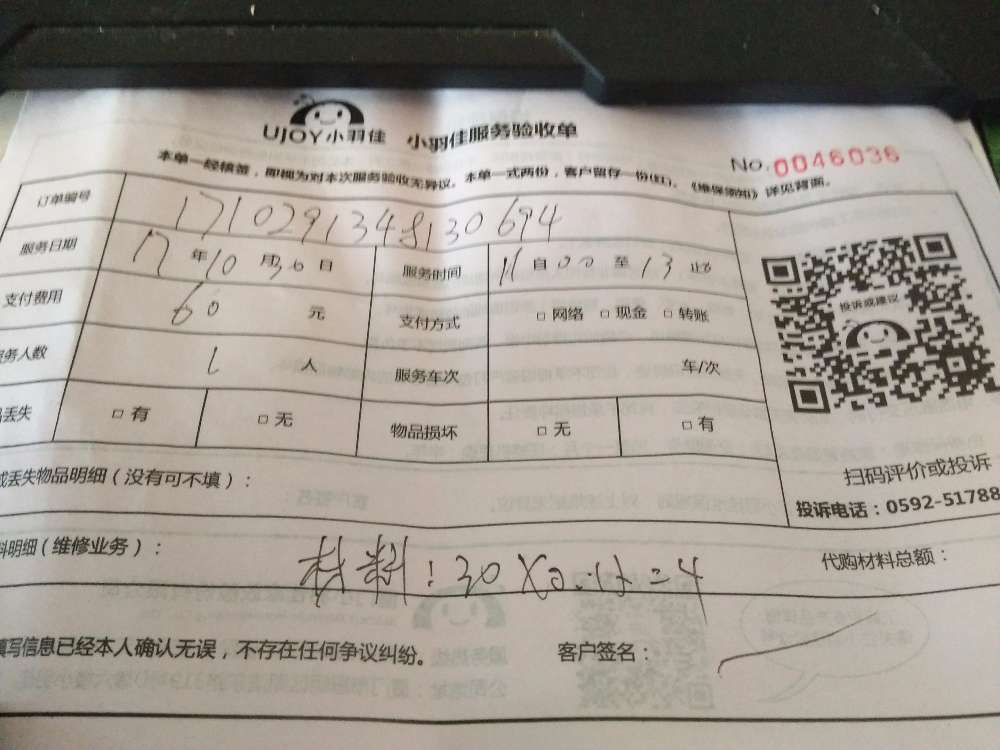 UJOY小羽佳 小羽佳服务验收单
No.0046036
本单一经核签，即视为对本次服务验收无异议。本单一式两份，客户留存一份(红)。《维保须知》详见背面。
订单编号 1710291348130694
服务日期 17年10月30日 服务时间 11自00至13止
支付费用 60元 支付方式 □网络 □现金 □转账
务人数 1人 服务车次 车/次
丢失 □有 □无 物品损坏 □无 □有
投诉或建议
扫码评价或投诉
投诉电话：0592-51788
或丢失物品明细（没有可不填）：
料明细（维修业务）： 代购材料总额：
材料：30X =4
填写信息已经本人确认无误，不存在任何争议纠纷。 客户签名：